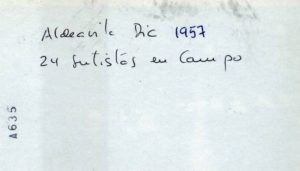 Aldeavila Dic 1957
24 Sutistas en Campo
A635